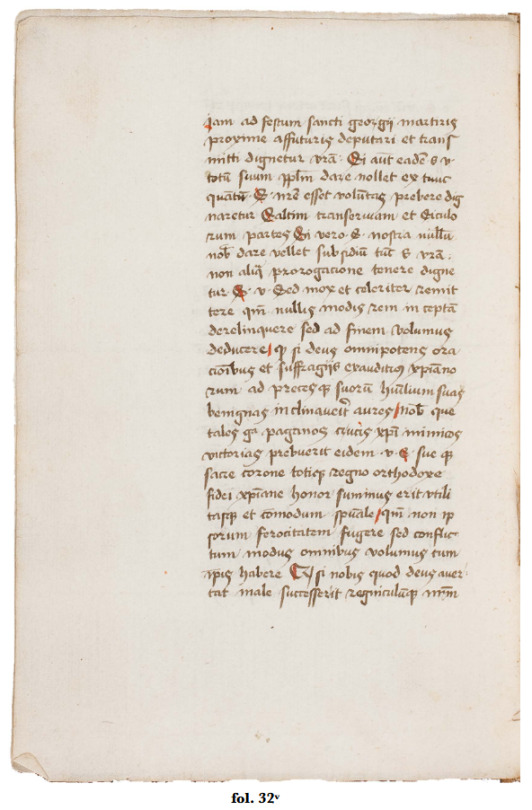 jam ad festum sancti georgij martiris
proxime affuturis deputari et trans
mitti dignetur vrā. Si aūt eadē s v
totū suum pplm̄ dare nollet ex tunc
quātū S. nr̄e esset volūtas prebere dig
naretur Saltim transsiluam et Siculo
rum partes Si vero S. nostra nullū
nob dare vellet subsidiū tūc s vrā.
non aliq̄ prorogacione tenere digne
tur S. v. Sed mox et celeriter remit
tere qm̄ nullis modis rem in ceptā
derelinquere sed ad finem volumus
deducere qꝫ si deus omnipotens ora
cionibus et suffragijs exauditis xp̄iano
rum ad precesqꝫ suorū humilium suas
benignas inclinauerit aures nob que
tales ga paganos crucis xp̄i inimicos
victorias prebuerit eidem .v. S sue qꝫ
sacre corone totiqꝫ regno orthodoxe
fidei xp̄iane honor summus erit vtili
tasqꝫ et comodum spūale qm̄ non ip
sorum ferocitatem fugere sed conflic
tum modis omnibus volumus cum
ip̄is habere Et si nobis quod deus auer
tat male successerit regniculūqꝫ nr̄m
fol. 32ᵛ